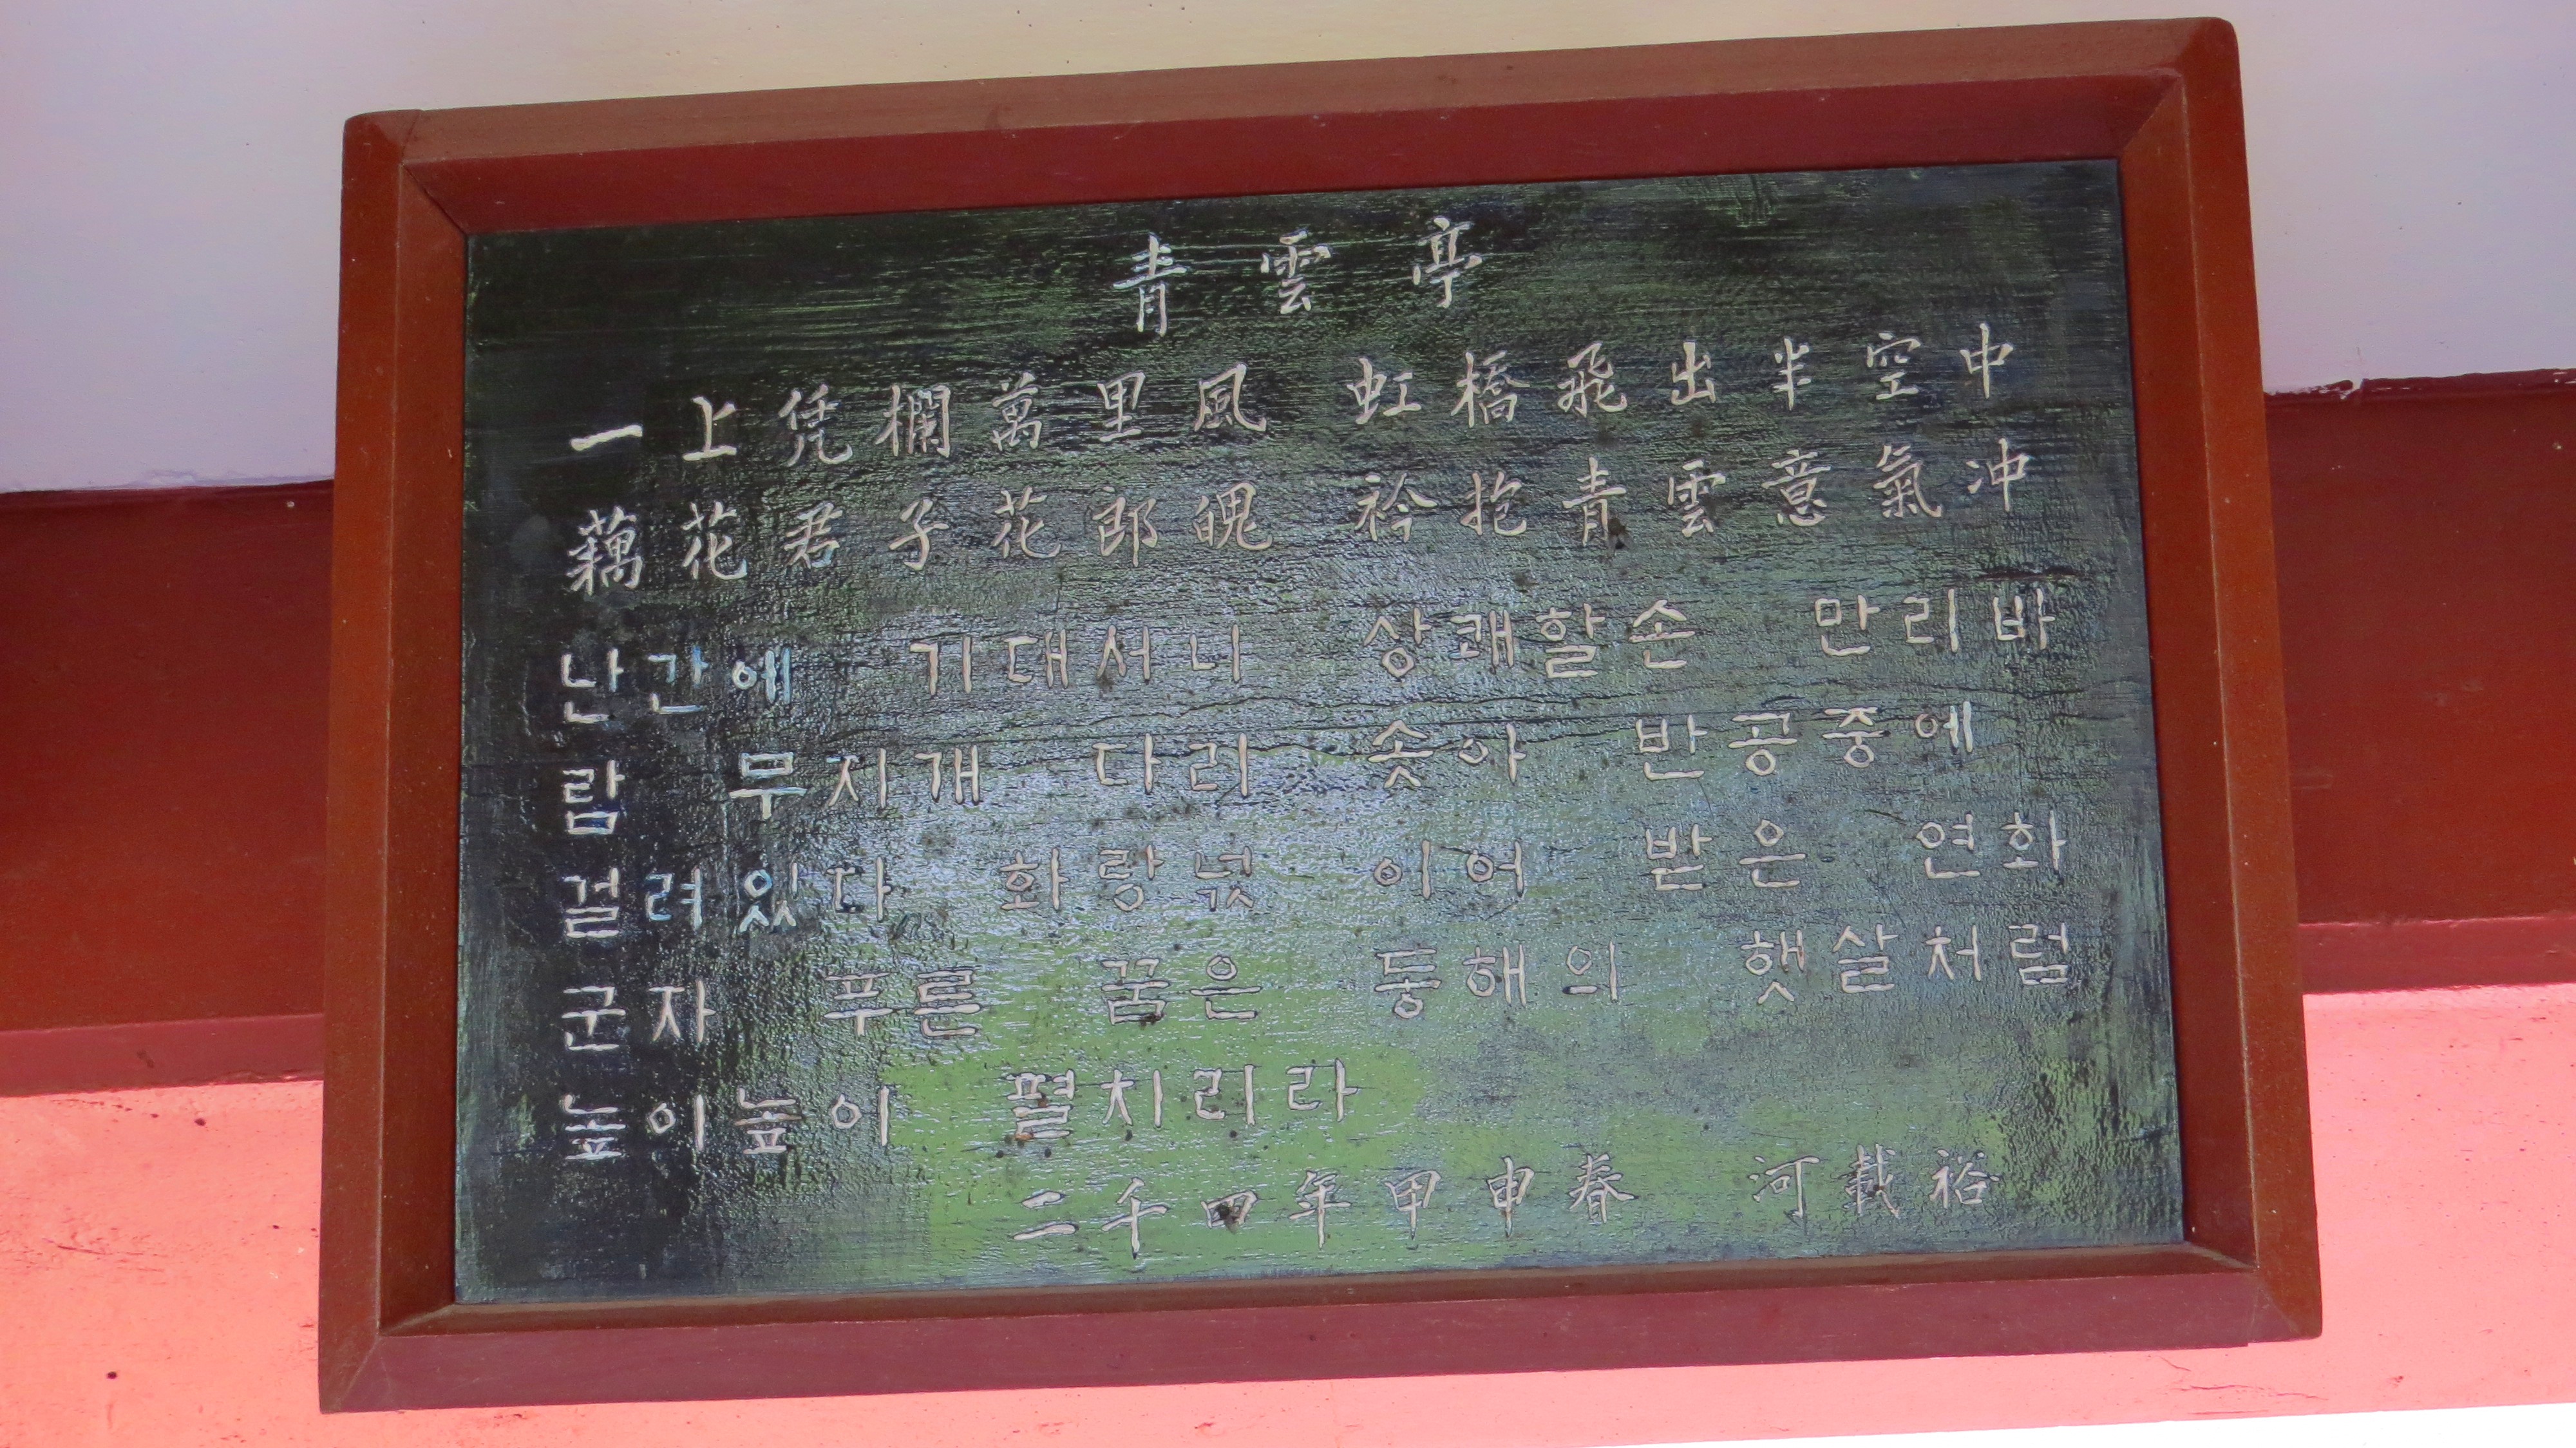 青雲亭
一上凭欄萬里風 虹橋飛出半空中
藕花君子花郎魄 衿抱青雲意氣冲
난간에 기대서니 상쾌할손 만리바
람 무지개 다리 솟아 반공중에
걸려있다 화랑넋 이어 받은 연화
군자 푸른 꿈은 동해의 햇살처럼
높이높이 펼치리라
二千四年甲申春 河載裕